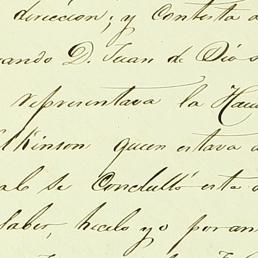 dirección; y Contesta a
uando D. Juan de Dio s
representava la Hau
tkinson quien estava a
al se Concluló esta
saber, hicelo yo por an